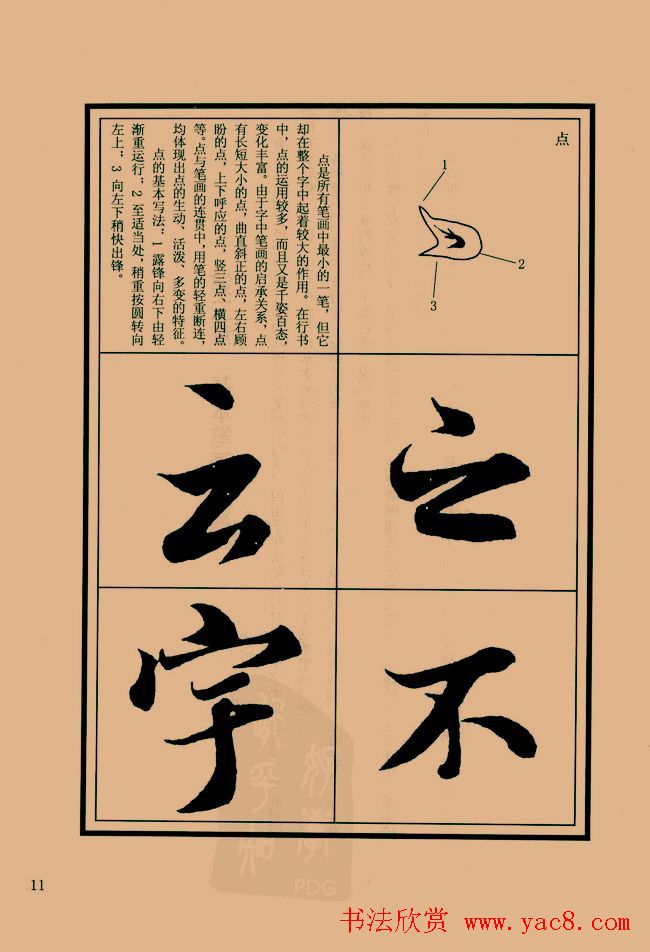 点
1
2
3
点是所有笔画中最小的一笔，但它
却在整个字中起着较大的作用。在行书
中，点的运用较多，而且又是千姿百态，
变化丰富。由于字中笔画的启承关系，点
有长短大小的点，曲直斜正的点，左右顾
盼的点，上下呼应的点，竖三点、横四点
等。点与笔画的连贯中，用笔的轻重断连，
均体现出点的生动、活泼、多变的特征。
点的基本写法：1 露锋向右下由轻
渐重运行；2 至适当处，稍重按圆转向
左上；3 向左下稍快出锋。
之
云
不
宇
PDG
11
书法欣赏 www.yac8.com